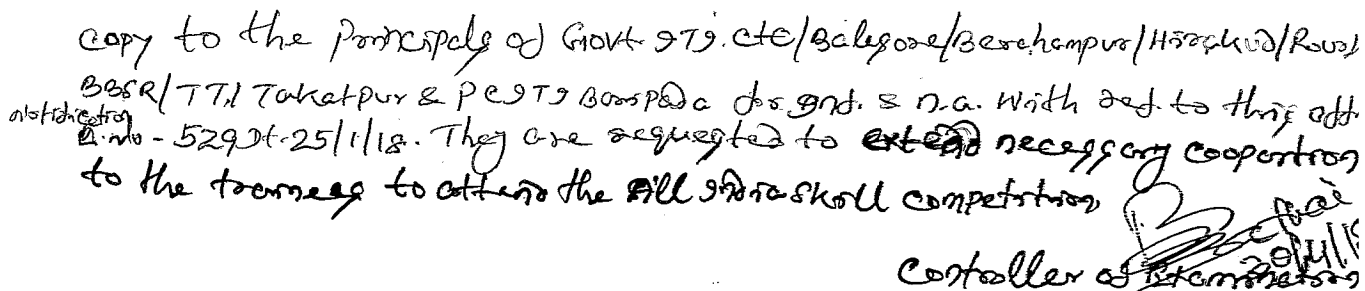 copy to the Principals of Govt. ITI. CTC/Balasore/Berhampur/Hirakud/
BBSR/TTI Takatpur & PC ITI Baripada for inf. & n.a. with ref. to this off.
notification
L.no - 529 Dt. 25/1/18. They are requested to extend necessary coopertion
to the trainees to attend the All India Skill competition
Controller of Examination